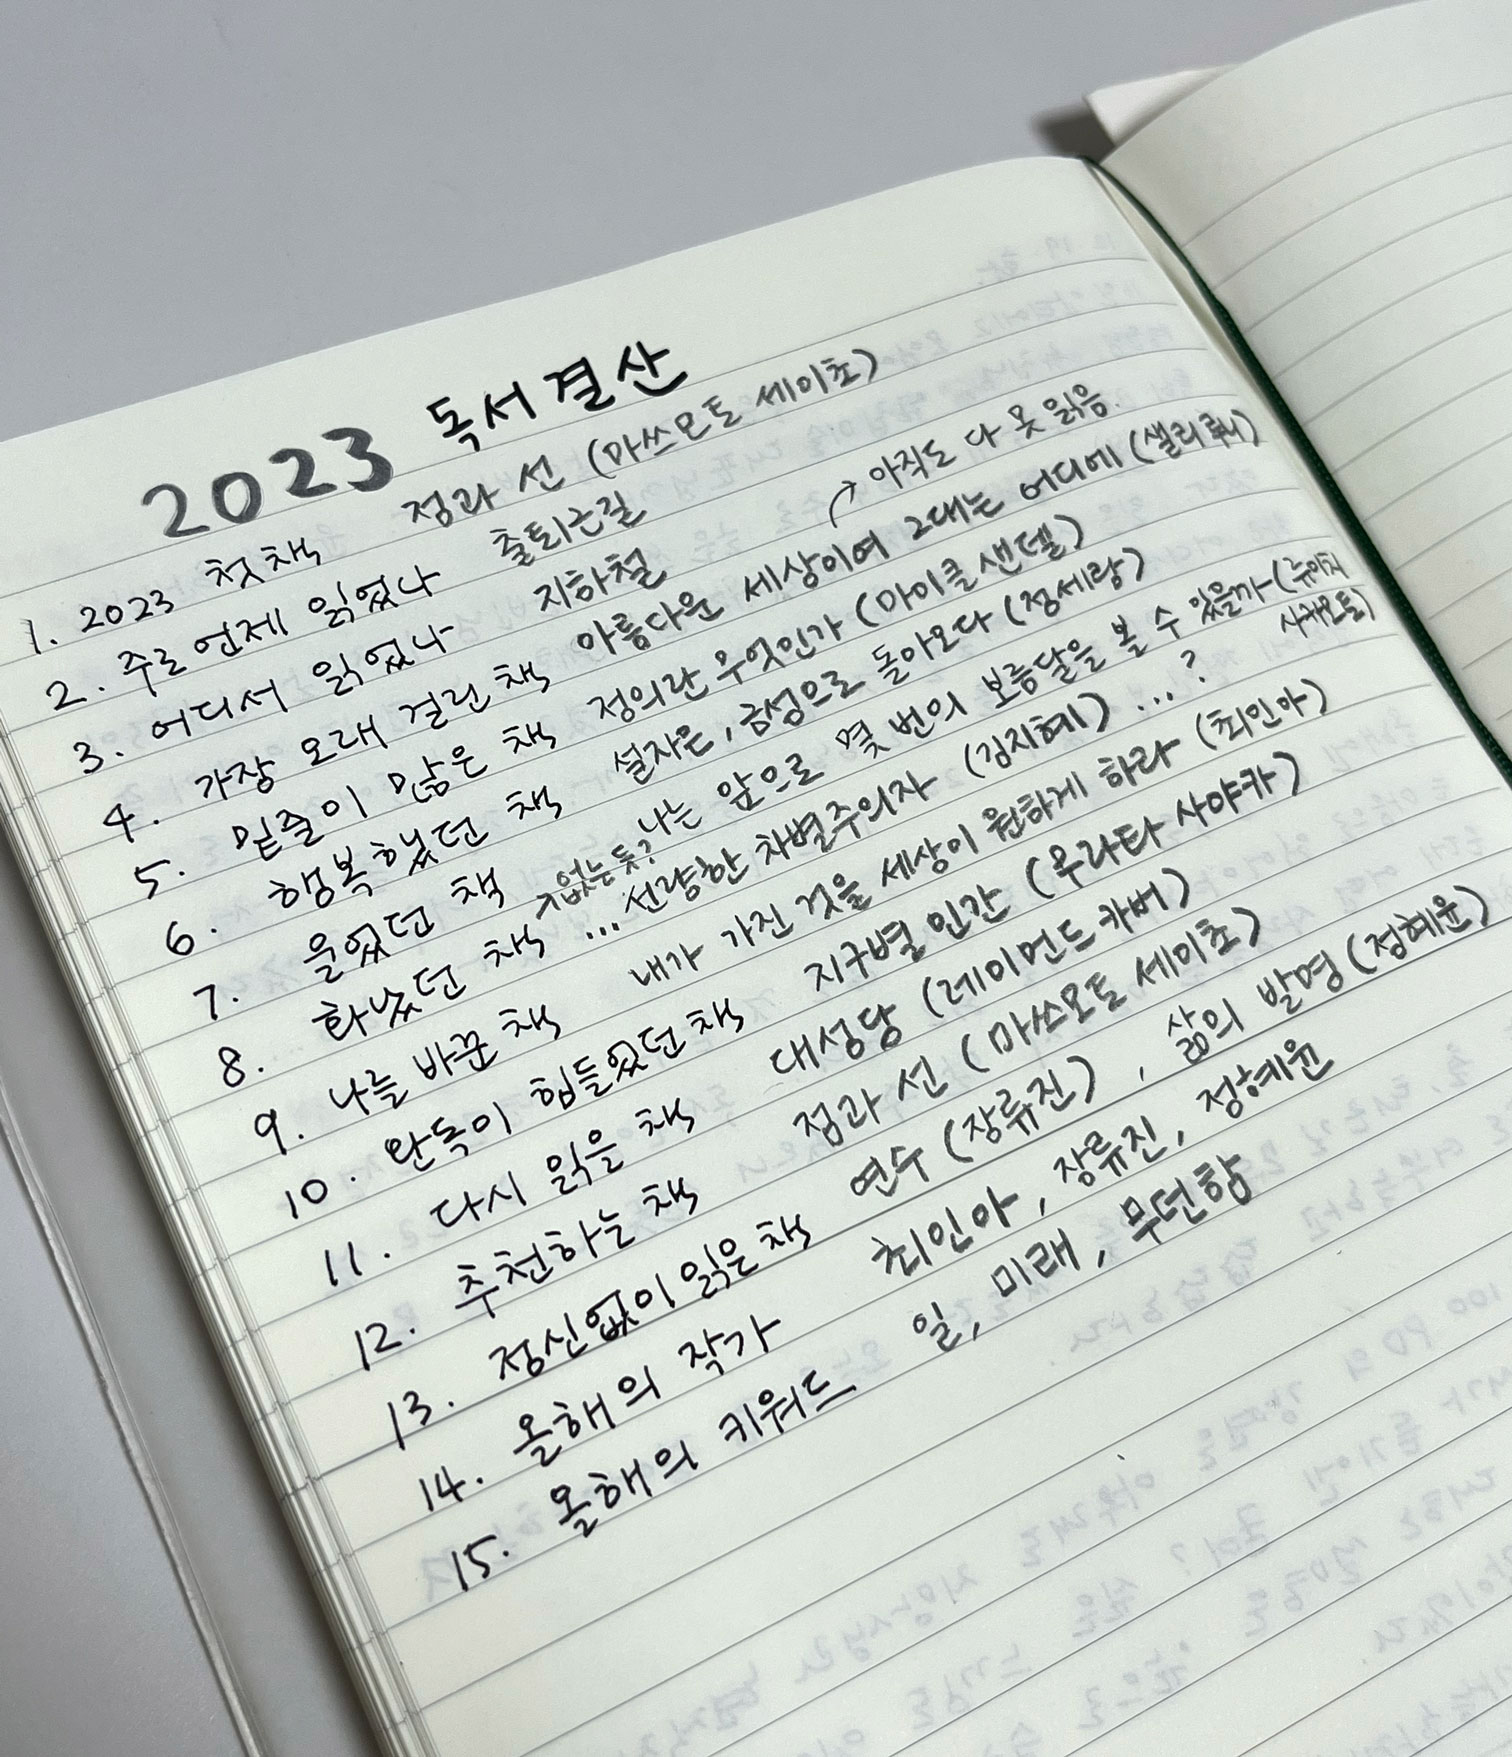 2023 독서결산
1. 2023 첫책 점과 선 (마쓰모토 세이초)
2. 주로 언제 읽었나 출퇴근길
3. 어디서 읽었나 지하철
→ 아직도 다 못 읽음.
4. 가장 오래 걸린 책 아름다운 세상이여 그대는 어디에 (샐리 루니)
5. 밑줄이 많은 책 정의란 무엇인가 (마이클 샌델)
6. 행복했던 책 설자은, 금성으로 돌아오다 (정세랑)
7. 울었던 책 없는 듯? 나는 앞으로 몇 번의 보름달을 볼 수 있을까 (류이치 사카모토)
8. 화났던 책 ... 선량한 차별주의자 (김지혜) ... ?
9. 나를 바꾼 책 내가 가진 것을 세상이 원하게 하라 (최인아)
10. 완독이 힘들었던 책 지구별 인간 (무라타 사야카)
11. 다시 읽을 책 대성당 (레이먼드 카버)
12. 추천하는 책 점과 선 (마쓰모토 세이초)
13. 정신없이 읽은 책 연수 (장류진), 삶의 발명 (정혜윤)
14. 올해의 작가 최인아, 장류진, 정혜윤
15. 올해의 키워드 일, 미래, 무던함